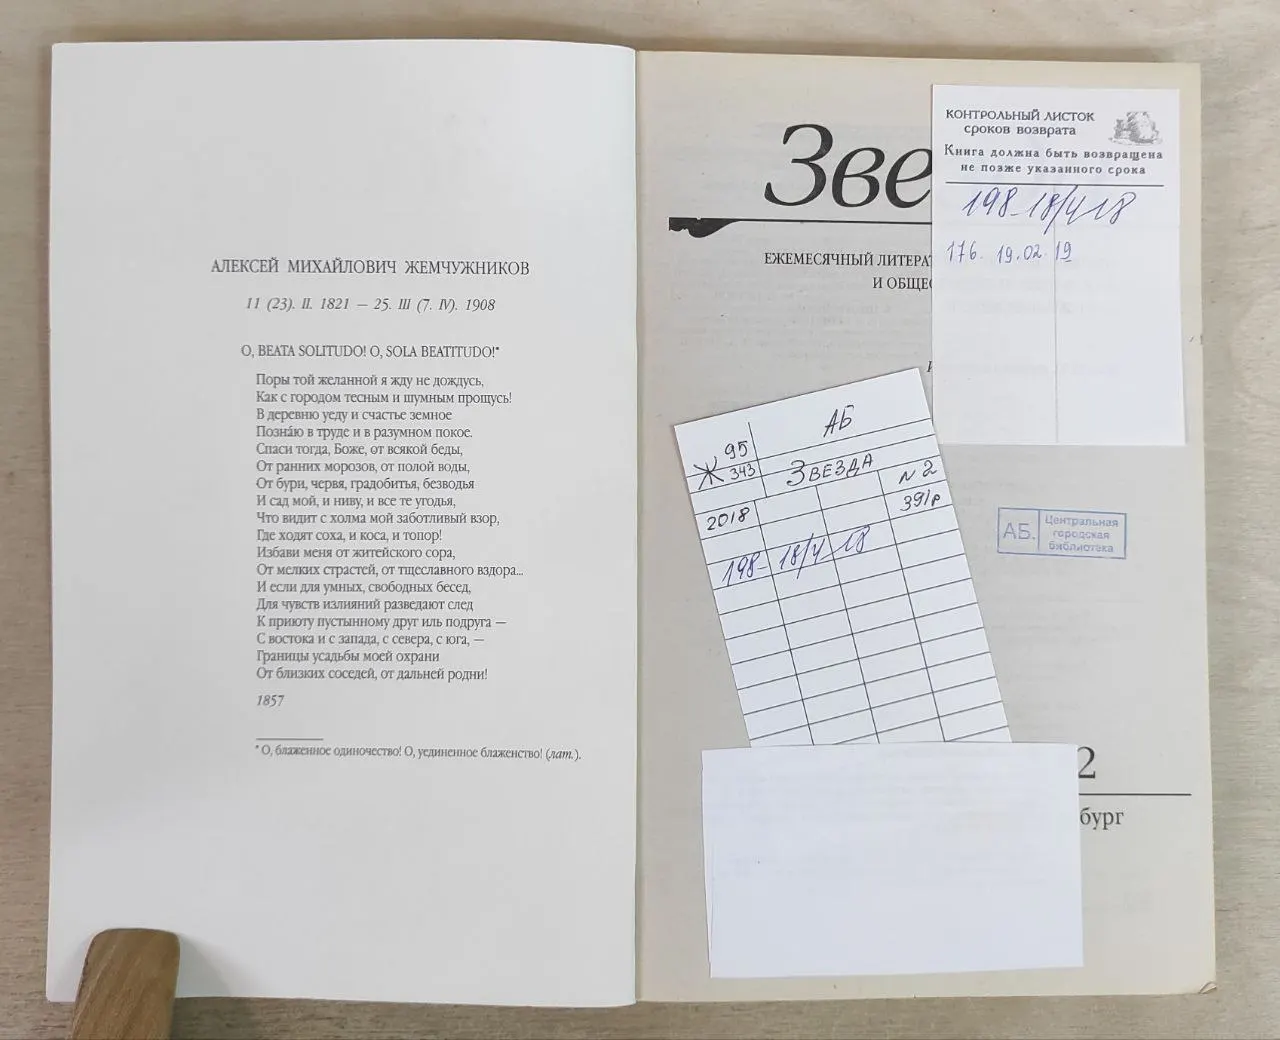 АЛЕКСЕЙ МИХАЙЛОВИЧ ЖЕМЧУЖНИКОВ
11 (23). II. 1821 — 25. III (7. IV). 1908
О, BEATA SOLITUDO! О, SOLA BEATITUDO!*
Поры той желанной я жду не дождусь,
Как с городом тесным и шумным прощусь!
В деревню уеду и счастье земное
Познáю в труде и в разумном покое.
Спаси тогда, Боже, от всякой беды,
От ранних морозов, от полой воды,
От бури, червя, градобитья, безводья
И сад мой, и ниву, и все те угодья,
Что видит с холма мой заботливый взор,
Где ходят соха, и коса, и топор!
Избави меня от житейского сора,
От мелких страстей, от тщеславного вздора...
И если для умных, свободных бесед,
Для чувств излияний разведают след
К приюту пустынному друг иль подруга —
С востока и с запада, с севера, с юга, —
Границы усадьбы моей охрани
От близких соседей, от дальней родни!
1857
* О, блаженное одиночество! О, уединенное блаженство! (лат.).
Зве
ЕЖЕМЕСЯЧНЫЙ ЛИТЕРАТ
И ОБЩЕС
КОНТРОЛЬНЫЙ ЛИСТОК
сроков возврата
Книга должна быть возвращена
не позже указанного срока
198-18/4 18
176. 19.02.19
АБ
Ж 95
343
ЗВЕЗДА
N 2
2018
391р
198- 18/4 18
АБ.
Центральная
городская
библиотека
2
бург